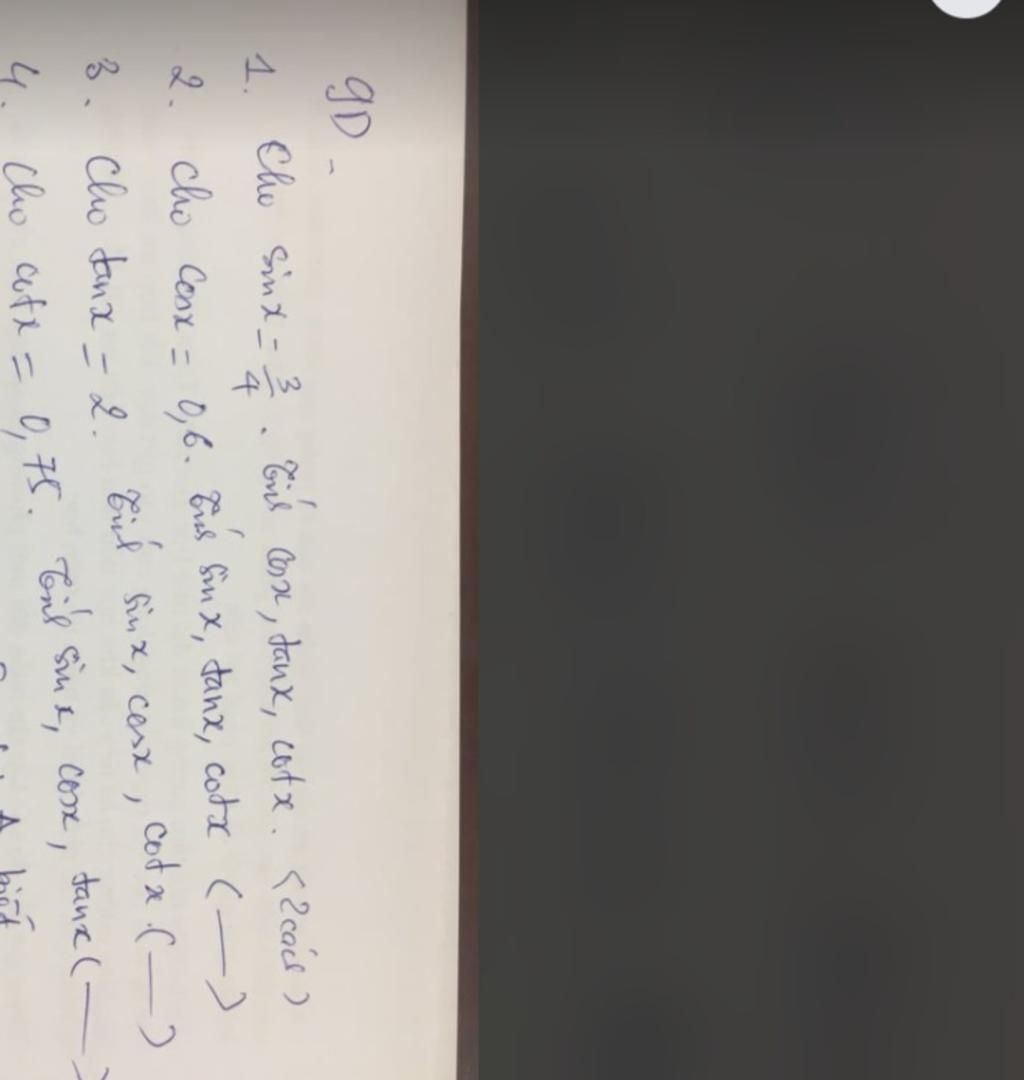 9D -
1. Cho sinx = 3/4. Tính cosx, tanx, cotx. (2 cách)
2. Cho cosx = 0,6. Tính sinx, tanx, cotx (—)
3. Cho tanx = 2. Tính sinx, cosx, cotx. (—)
4. Cho cotx = 0,75. Tính sinx, cosx, tanx (—)
biết